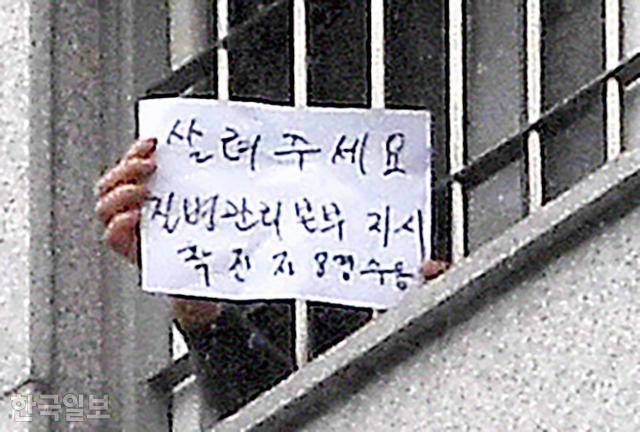 살려 주세요
질병관리본부 지시
확진자 8명 수용
한국일보